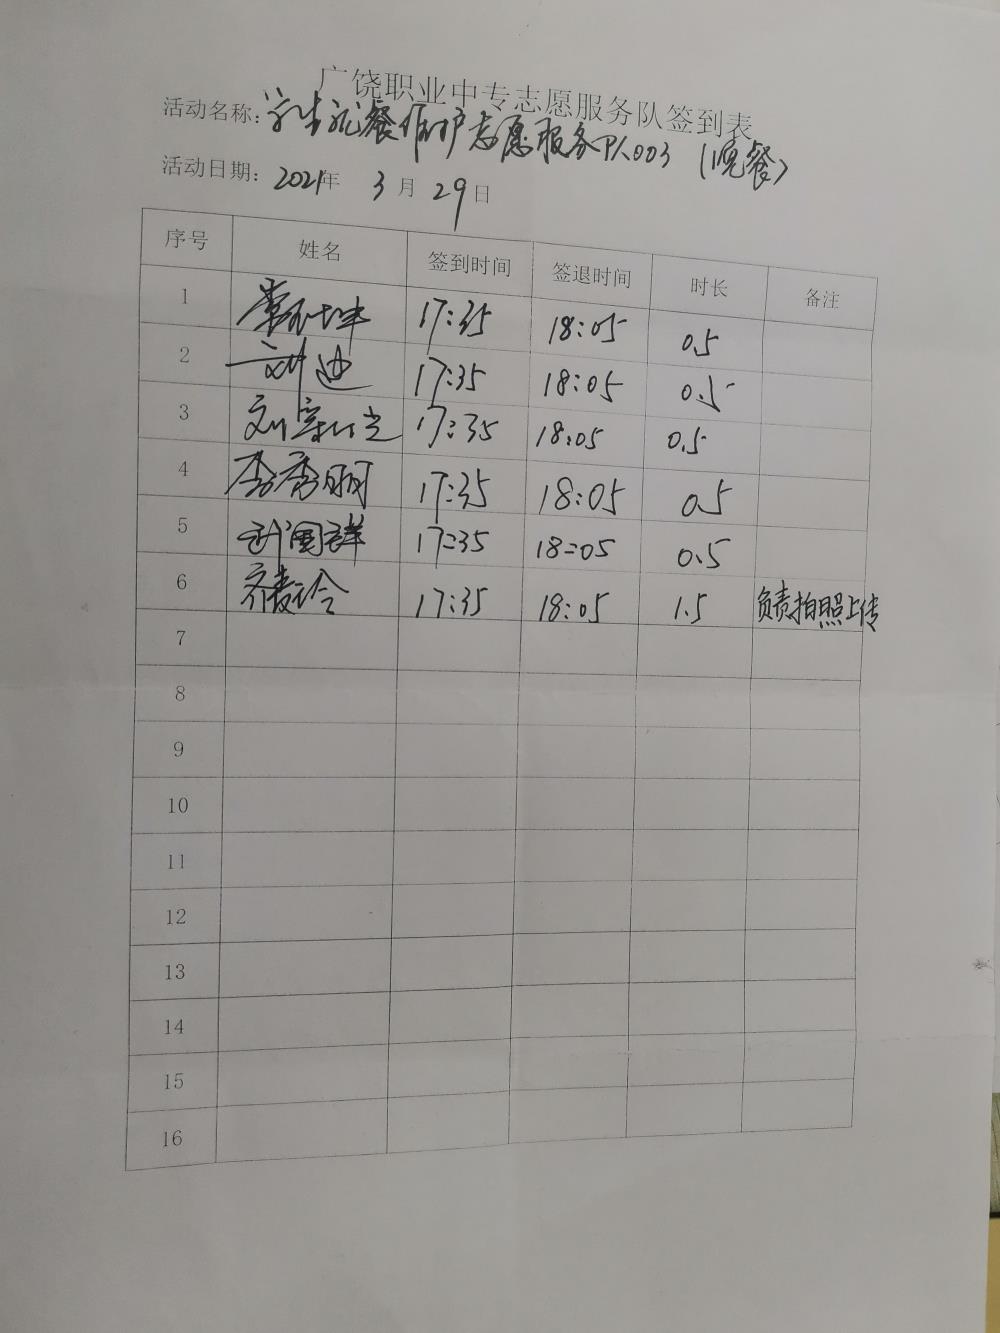 广饶职业中专志愿服务队签到表
活动名称：学生就餐维护志愿服务队003（晚餐）
活动日期：2021年 3 月 29 日
序号 姓名 签到时间 签退时间 时长 备注
1 17:35 18:05 0.5
2 刘迪 17:35 18:05 0.5
3 17:35 18:05 0.5
4 李秀丽 17:35 18:05 0.5
5 17:35 18:05 0.5
6 17:35 18:05 1.5 负责拍照上传
7
8
9
10
11
12
13
14
15
16